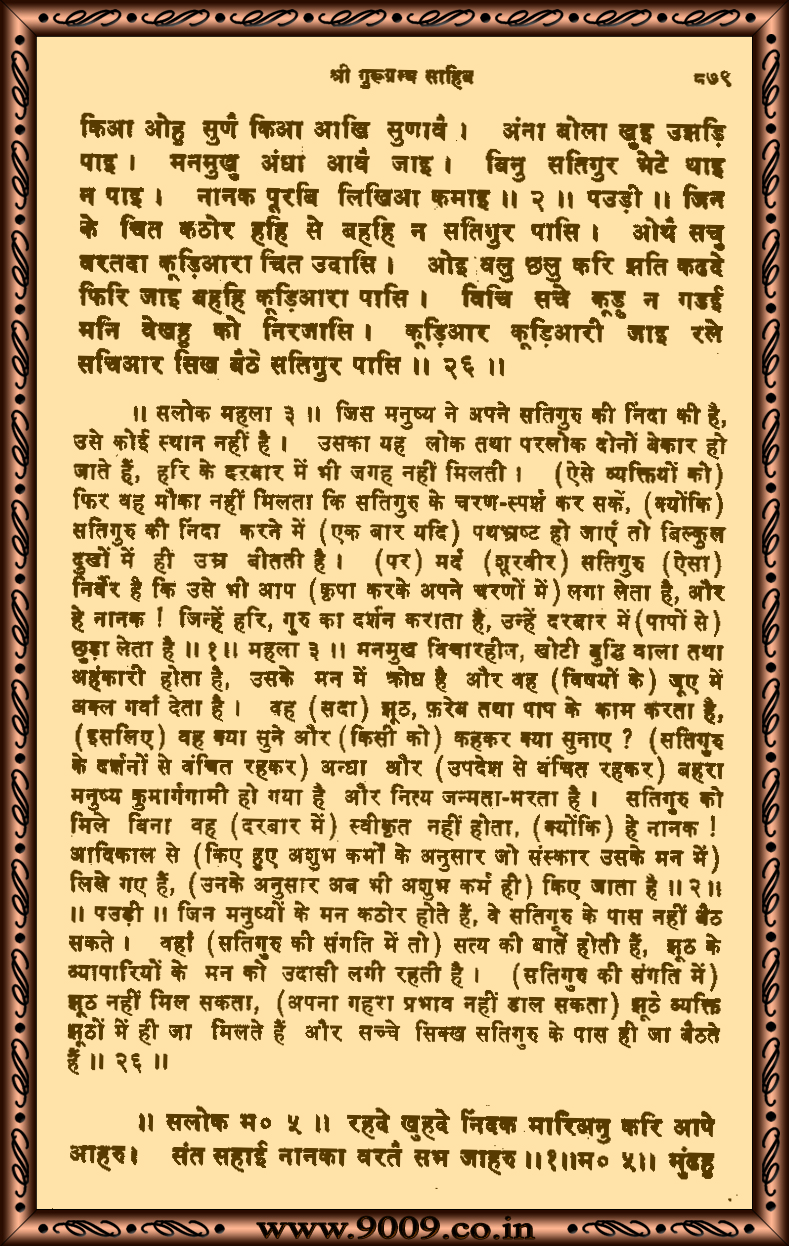 श्री गुरूग्रन्थ साहिब ८७९
किआ ओहु सुणै किआ आखि सुणावै । अंना बोला खुइ उझड़ि
पाइ । मनमुखु अंधा आवै जाइ । बिनु सतिगुर भेटे थाइ
न पाइ । नानक पूरबि लिखिआ कमाइ ॥ २ ॥ पउड़ी ॥ जिन
के चित कठोर हहि से बहहि न सतिगुर पासि । ओथै सचु
वरतदा कूड़िआरा चित उदासि । ओइ वलु छलु करि झति कढदे
फिरि जाइ बहहि कूड़िआरा पासि । विचि सचे कूड़ु न गडई
मनि वेखहु को निरजासि । कूड़िआर कूड़िआरी जाइ रले
सचिआर सिख बैठे सतिगुर पासि ॥ २६ ॥
॥ सलोक महला ३ ॥ जिस मनुष्य ने अपने सतिगुरु की निंदा की है,
उसे कोई स्थान नहीं है । उसका यह लोक तथा परलोक दोनों बेकार हो
जाते हैं, हरि के दरबार में भी जगह नहीं मिलती । (ऐसे व्यक्तियों को)
फिर वह मौका नहीं मिलता कि सतिगुरु के चरण-स्पर्श कर सकें, (क्योंकि)
सतिगुरु की निंदा करने में (एक बार यदि) पथभ्रष्ट हो जाएँ तो बिल्कुल
दुखों में ही उम्र बीतती है । (पर) मर्द (शूरवीर) सतिगुरु (ऐसा)
निर्वैर है कि उसे भी आप (कृपा करके अपने चरणों में) लगा लेता है, और
हे नानक ! जिन्हें हरि, गुरु का दर्शन कराता है, उन्हें दरबार में (पापों से)
छुड़ा लेता है ॥ १॥ महला ३ ॥ मनमुख विचारहीन, खोटी बुद्धि वाला तथा
अहंकारी होता है, उसके मन में क्रोध है और वह (विषयों के) जूए में
अक्ल गवाँ देता है । वह (सदा) झूठ, फ़रेब तथा पाप के काम करता है,
(इसलिए) वह क्या सुने और (किसी को) कहकर क्या सुनाए ? (सतिगुरु
के दर्शनों से वंचित रहकर) अन्धा और (उपदेश से वंचित रहकर) बहरा
मनुष्य कुमार्गगामी हो गया है और नित्य जन्मता-मरता है । सतिगुरु को
मिले बिना वह (दरबार में) स्वीकृत नहीं होता, (क्योंकि) हे नानक !
आदिकाल से (किए हुए अशुभ कर्मों के अनुसार जो संस्कार उसके मन में)
लिखे गए हैं, (उनके अनुसार अब भी अशुभ कर्म ही) किए जाता है ॥ २॥
॥ पउड़ी ॥ जिन मनुष्यों के मन कठोर होते हैं, वे सतिगुरु के पास नहीं बैठ
सकते । वहाँ (सतिगुरु की संगति में तो) सत्य की बातें होती हैं, झूठ के
व्यापारियों के मन को उदासी लगी रहती है । (सतिगुरु की संगति में)
झूठ नहीं मिल सकता, (अपना गहरा प्रभाव नहीं डाल सकता) झूठे व्यक्ति
झूठों में ही जा मिलते हैं और सच्चे सिक्ख सतिगुरु के पास ही जा बैठते
हैं ॥ २६ ॥
॥ सलोक म० ५ ॥ रहदे खुहदे निंदक मारिअनु करि आपे
आहरु। संत सहाई नानका वरतै सभ जाहरु ॥१॥म० ५॥ मुंढहु
www.9009.co.in